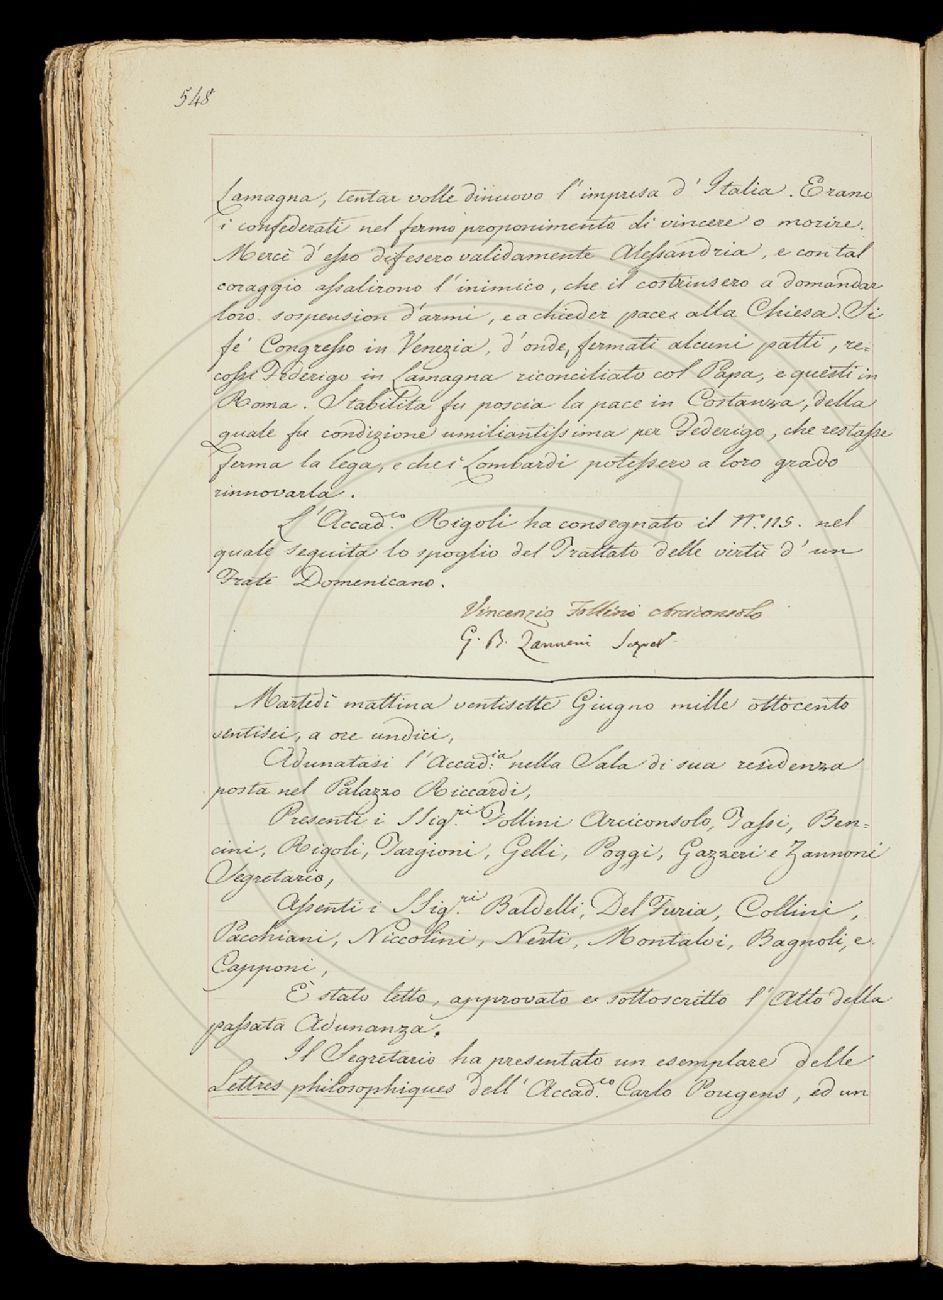 548
Lamagna, tentar volle dinuovo l'impresa d'Italia. Erano
i confederati nel fermo proponimento di vincere o morire.
Mercè d'esso difesero validamente Alessandria, e con tal
coraggio assalirono l'inimico, che il costrinsero a domandar
loro sospension d'armi, e a chieder pace alla Chiesa. Si
fe' Congresso in Venezia, d'onde, fermati alcuni patti, re=
cossi Federigo in Lamagna riconciliato col Papa, e questi in
Roma. Stabilita fu poscia la pace in Costanza, della
quale fu condizione umiliantissima per Federigo, che restasse
ferma la lega, e che i Lombardi potessero a loro grado
rinnovarla.
L'Accad.co Rigoli ha consegnato il N.o 115. nel
quale seguita lo spoglio del Trattato delle virtù d'un
Frate Domenicano.
Vincenzio Follini Arciconsolo
G. B. Zannoni Segret
Martedì mattina ventisette Giugno mille ottocento
ventisei, a ore undici,
Adunatasi l'Accad.ia nella Sala di sua residenza
posta nel Palazzo Riccardi,
Presenti i SSig.ri Follini Arciconsolo, Tassi, Ben=
cini, Rigoli, Targioni, Gelli, Poggi, Gazzeri e Zannoni
Segretario,
Assenti i SSig.ri Baldelli, Del Furia, Collini,
Pacchiani, Niccolini, Nesti, Montalvi, Bagnoli, e
Capponi,
È stato letto, approvato e sottoscritto l'Atto della
passata Adunanza.
Il Segretario ha presentato un esemplare delle
Lettres philosophiques dell'Accad.co Carlo Pougens, ed un